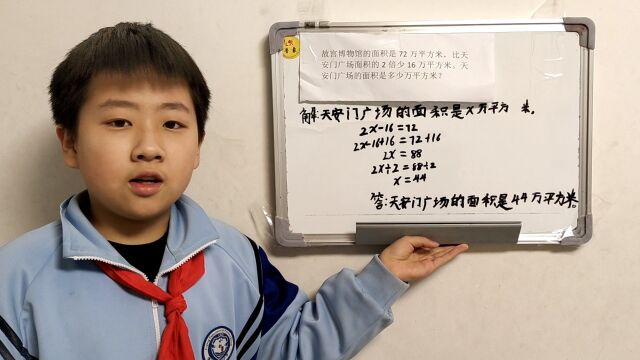 故宫博物馆的面积是72万平方米,比天
安门广场面积的2倍少16万平方米。天
安门广场的面积是多少万平方米?
解:天安门广场的面积是x万平方 米.
2x-16=72
2x-16+16=72+16
2x=88
2x÷2=88÷2
x=44
答:天安门广场的面积是44万平方米.